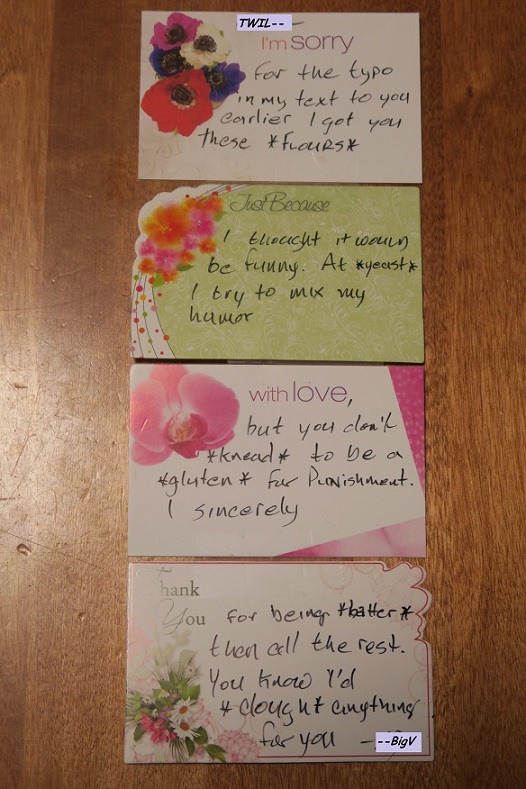 TWIL--
I'm sorry
For the typo
in my text to you
earlier I got you
these *FLOURS*
Just Because
I thought it would
be funny. At *yeast*
I try to mix my
humor
with love,
but you don't
*knead* to be a
*gluten* for Punishment.
I sincerely
Thank
You for being *batter*
then all the rest.
You know I'd
*dough* anything
for you —
--BigV